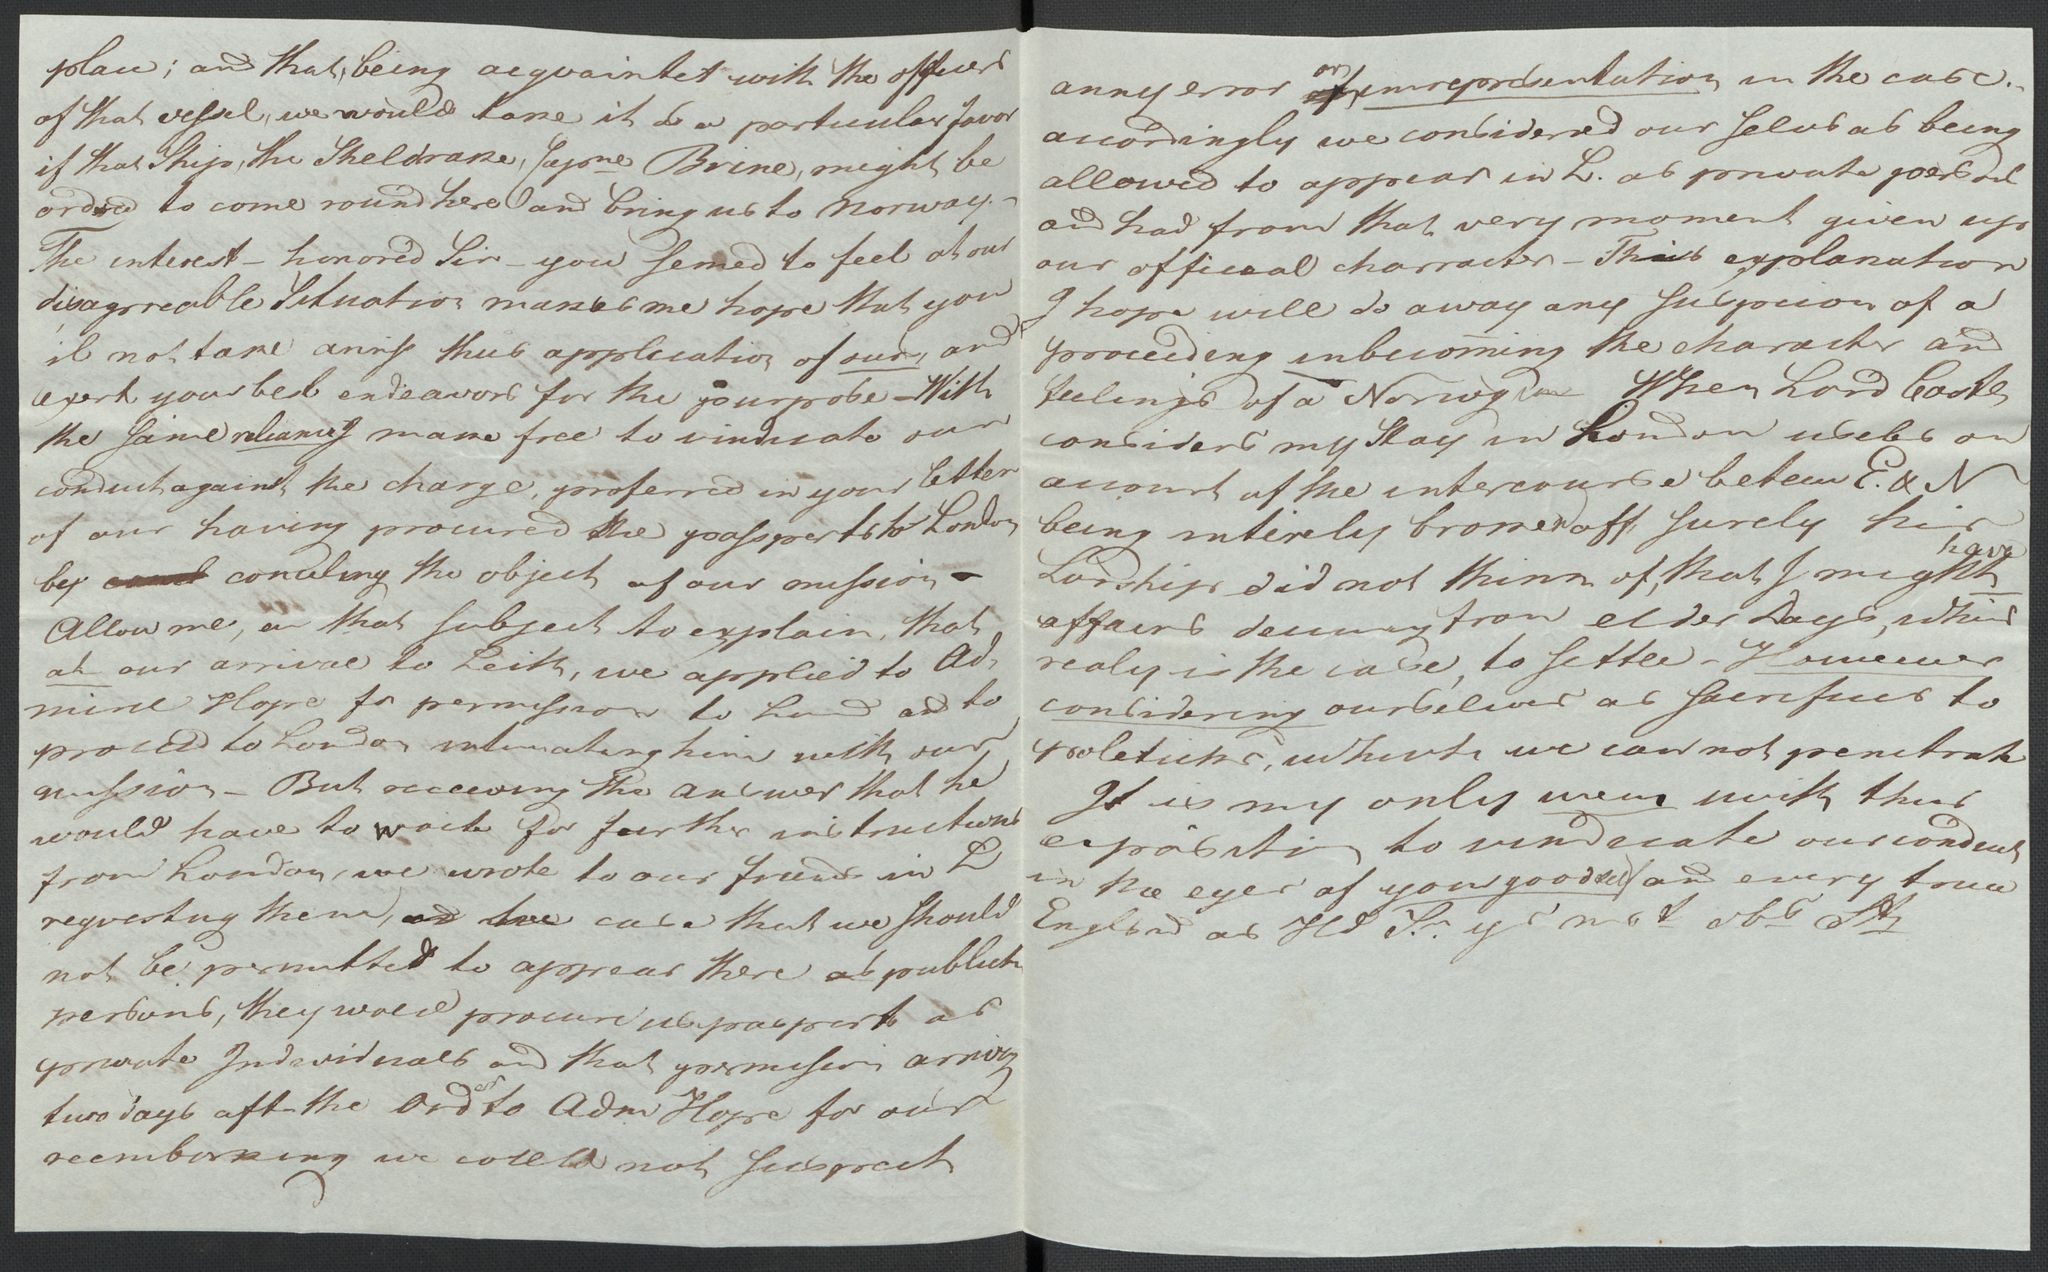 place; and that, being acqvaintet with the officers
of that vessel, we would take it as a particular favor
if that Ship, the Sheldrake, Capne Brine, might be
ordred to come round here and bring us to Norway.-
The interest - honored Sir - you semed to feel at our
disagreable Situation makes me hope that you
il not take amiss thus application of our, and
exert your best endeavors for the pourpose - With
the same reliance I make free to vindicate our
conduct against the charge, proferred in your letter
of our having procured the passperts to London
by conceling the object of our mission -
Allow me, on that subject to explain, that
at our arrival to Leith, we applied to Ad,
miral Hope for permission to land and to
proceed to London intimating him with our
mission - But receeving the answer that he
would have to waite for further instructions
from London, we wrote to our friends in L
reqvesting them, case that we should
not be permitted to appear there as publick
persons, they woul procure us pasperts as
private Individuals and that permission arriving
two days aft the Order to Adm Hope for our
reembarking we could not suspect
anny error or misrepresentation in the case.-
accordingly we considered our selves as being
allowed to appear in L. as private persons
and had from that very moment given up
our officeal charracter - This explanation
I hope will do away any suspicion of a
proceeding unbecoming the character and
feelings of a Norwegian When Lord Castel
considers my Stay in London useles on
account of the intercourse beteen E. & N
being intirely broken off, surely his
Lordship did not think of, that I might have
affairs deuing from elder Days, which
realy is the case, to settle - However
considering ourselves as sacrifices to
poleticks, which we can not penetrate
It is my only view with thus
exposition to vindicate our conduct
in the eyes of your good self and every true
England as Hd Sr. yr mst obt St